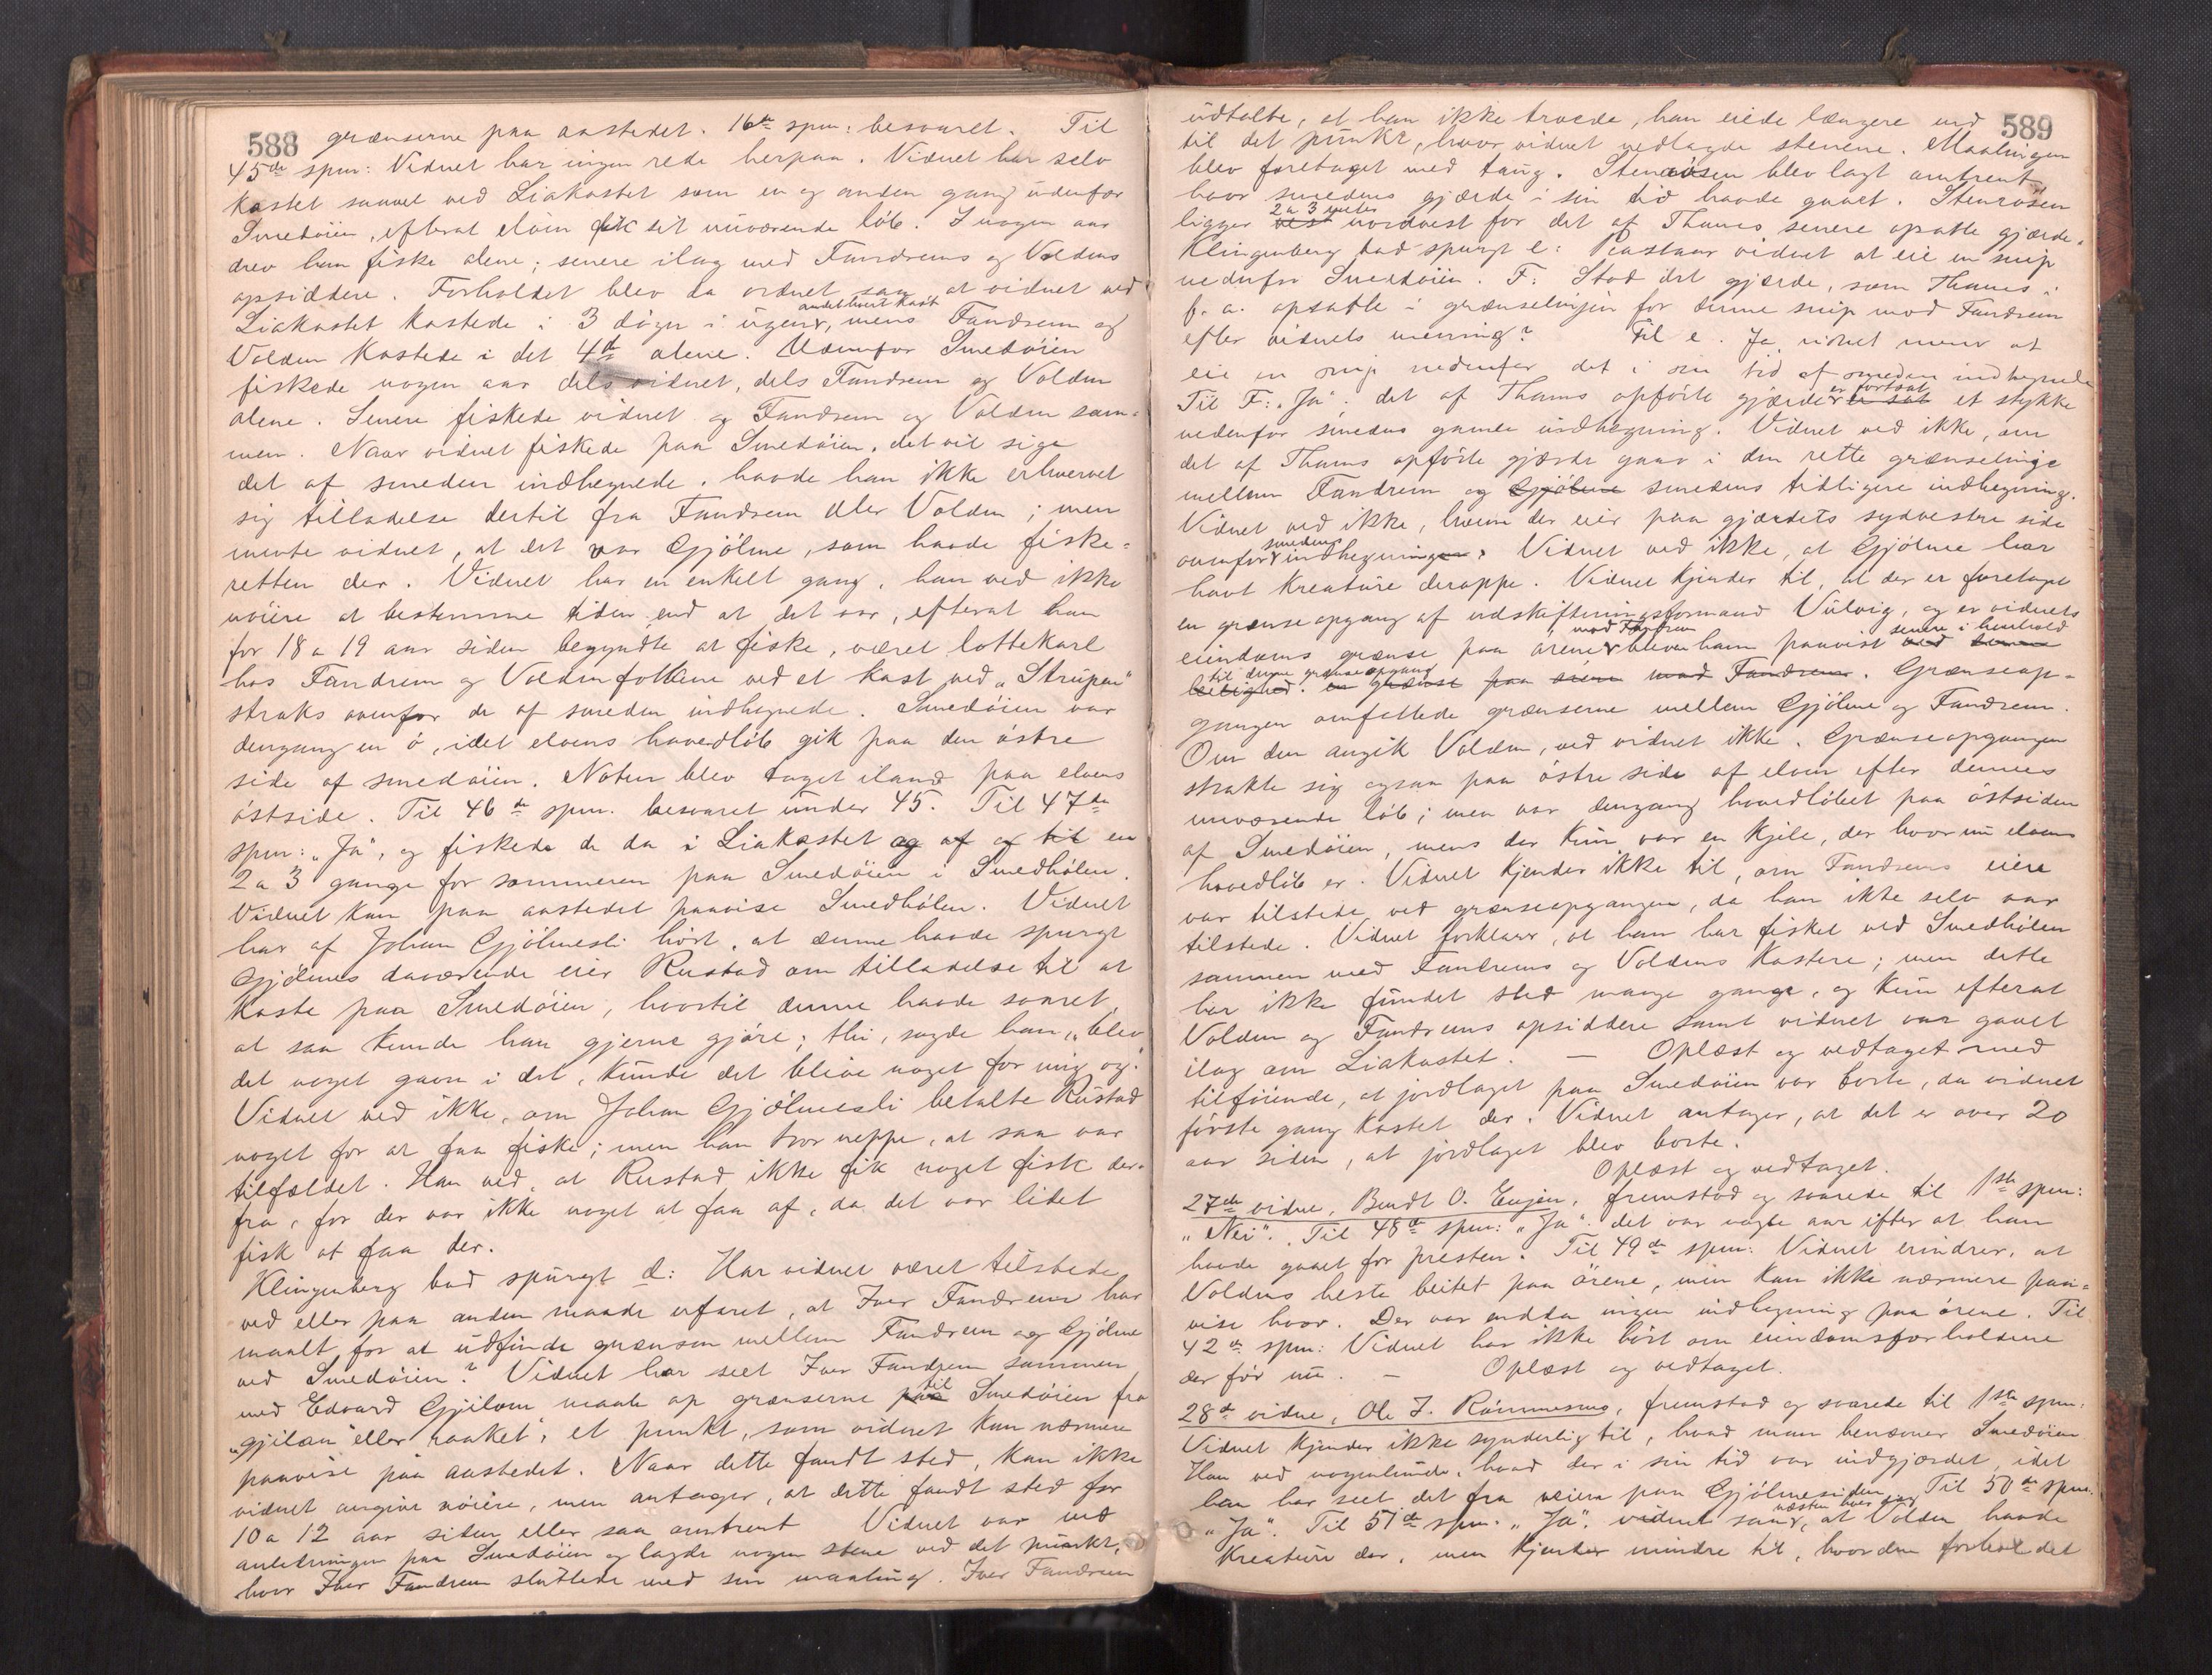 588
grænserne paa aastedet. 16de spm: besvaret. Til
45de spm: Vidnet har ingen rede herpaa. Vidnet har selv
kastet saavel ved Liakastet som en og anden gang udenfor
Smedøien, efterat elven fik sit nuværende løb. I nogen aar
drev han fiske alene; senere ilag med Fandrems og Voldens
opsiddere. Forholdet blev da ordnet saa, at vidnet ved
andethvert kast
Liakastet kastede i 3 døgn i ugen, mens Fandrem og
Volden kastede i det 4de alene. Udenfor Smedøien
fiskede nogen aar dels vidnet, dels Fandrem og Volden
alene. Senere fiskede vidnet og Fandrem og Volden sam-
men. Naar vidnet fiskede paa Smedøien, det vil sige
det af smeden indhegnede, havde han ikke erhvervet
sig tilladelse dertil fra Fandrem eller Volden; men
mente vidnet, at det var Gjølme, som havde fiske-
retten der. Vidnet har en enkelt gang, han ved ikke
nøiere at bestemme tiden end at det var, efterat han
for 18 a 19 aar siden begyndte at fiske, været lottekarl
hos Fandrem og Voldenfolkene ved et kast ved „Strupen"
straks ovenfor de af smeden indhegnede. Smedøien var
dengang en ø, idet elvens hovedløb gik paa den østre
side af smedøien. Noten blev taget iland paa elvens
østside. Til 46de spm. besvaret under 45. Til 47de
spm: „Ja", og fiskede de da i Liakastet og af og til en
2 a 3 gange for sommeren paa Smedøien i Smedhølen.
Vidnet kan paa aastedet paavise Smedhølen. Vidnet
har af Johan Gjølmesli hørt, at denne havde spurgt
Gjølmes daværende eier Rustad om tilladelse til at
kaste paa Smedøien, hvortil denne havde svaret,
at saa kunde han gjerne gjøre; thi, sagde han, „blev
det noget gavn i det, kunde det blive noget for mig og."
Vidnet ved ikke, om Johan Gjølmesli betalte Rustad
noget for at faa fiske; men han tror neppe, at saa var
tilfældet. Han ved, at Rustad ikke fik noget fisk der-
fra, for der var ikke noget at faa af, da det var lidet
fisk at faa der.
Klingenberg bad spurgt d: Har vidnet været tilstede
ved eller paa anden maade erfaret, at Iver Fandrem har
maalt for at udfinde grænsen mellem Fandrem og Gjølme
ved Smedøien? Vidnet har seet Iver Fandrem sammen
til
med Edvard Gjilan maale op grænserne paa Smedøien fra
„gjilan" eller raaket", et punkt, som vidnet kan nærmere
paavise paa aastedet. Naar dette fandt sted, kan ikke
vidnet angive nøiere, men antager, at dette fandt sted for
10 a 12 aar siden eller saa omtrent Vidnet var ved
anledningen paa Smedøien og lagde nogen stene ved det punkt,
hvor Iver Fandrem sluttede med sin maaling. Iver Fandrem
589
udtalte, at han ikke troede, han eiede længere ned
til det punkt, hvor vidnet nedlagde stenene. Maalingen
blev foretaget med taug. Stenrøsen blev lagt omtrent
hvor smedens gjærde i sin tid havde gaaet. Stenrøsen
2 a 3 meter
ligger vest nordvest for det af Thams senere opsatte gjærde.
Klingenberg bad spurgt e: Paastaar vidnet at eie en snip
nedenfor Smedøien. F: Stod det gjærde, som Thams i
f. a. opsatte i grænselinjen for denne snip mod Fandrem
efter vidnets mening? Til e. Ja, vidnet mener at
eie en snip nedenfor det i sin tid af smeden indhegnede
er fortsat
Til F: „Ja". det af Thams opførte gjærde er sat et stykke
nedenfor smedens gamle indhegning. Vidnet ved ikke, om
det af Thams opførte gjærde gaar i den rette grænselinje
mellem Fandrem og Gjølme smedens tidligere indhegning.
Vidnet ved ikke, hvem der eier paa gjærdets sydvestre side
smedens
ovenfor indhegningen. Vidnet ved ikke, at Gjølme har
havt kreature deroppe. Vidnet kjender til, at der er foretaget
en grænseopgang af udskiftningsformand Vulvig, og er vidnets
mod Fandrem senere i henhold
eiendoms grænse paa ørene bleven ham paavist ved denne
til denne grænseopgang
leilighed. en grænse paa ørene mod Fandrem. Grænseop-
gangen omfattede grænserne mellem Gjølme og Fandrem.
Om den angik Volden, ved vidnet ikke. Grænseopgangen
strakte sig ogsaa paa østre side af elven efter dennes
nuværende løb; men var dengang hovedløbet paa østsiden
af Smedøien, mens der kun var en kjele, der hvor nu elvens
hovedløb er. Vidnet kjender ikke til, om Fandrems eiere
var tilstede ved grænseopgangen, da han ikke selv var
tilstede. Vidnet forklarer, at han har fisket ved Smedhølen
sammen med Fandrems og Voldens kastere; men dette
har ikke fundet sted mange gange, og kun efterat
Volden og Fandrems opsiddere samt vidnet var gaaet
ilag om Liakastet. — Oplæst og vedtaget med
tilføiende, at jordlaget paa Smedøien var borte, da vidnet
første gang kastet der. Vidnet antager, at det er over 20
aar siden, at jordlaget blev borte.
Oplæst og vedtaget.
27de vidne, Bendt O. Eujen, fremstod og svarede til 1ste spm:
„Nei". Til 48de spm: „Ja". det var nogle aar efter at han
havde gaaet for presten. Til 49de spm: Vidnet erindrer, at
Voldens heste beitet paa ørene, men kan ikke nærmere paa-
vise hvor. Der var endda ingen indhegning paa ørene. Til
42de spm: Vidnet har ikke hørt om eiendomsforholdene
der før nu. — Oplæst og vedtaget.
28de vidne, Ole J. Rømmesmo, fremstod og svarede til 1ste spm:
Vidnet kjender ikke synderlig til, hvad man benævner Smedøien
Han ved nogenlunde, hvad der i sin tid var indgjærdet, idet
han har seet det fra veien paa Gjølmesiden. Til 50de spm.
næsten hver gang
„Ja". Til 51de spm: „Ja". vidnet saa, at Volden havde
kreature der, men kjender mindre til, hvordan forholdet